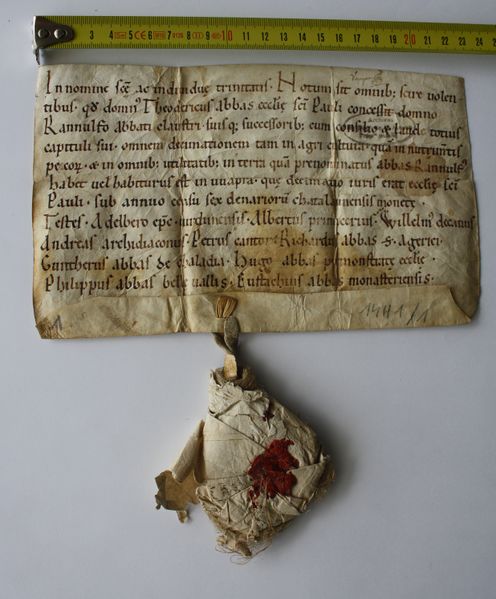 3 4 5 6 7 8 9 10 11 12 13 14 15 16 17 18 19 20 21 22 23 24
In nomine scē ac indiuidue trinitatis. Notum sit omnib; scire uolen
tibus. qđ domnꝰ Theodericus abbas ecclię scī Pauli concessit domno
Rannulfo abbati claustri suisq; successorib; cum consilio & laude totius
capituli sui. omnem decimationem tam in agri cultura. quā in nutrimtis
pecorꝝ & in omnib; utilitatib; in terra quā prenominatus abbas Rannulfꝰ
habet uel habiturus est in uuapra. quę decimatio iuris erat ecclię scī
Pauli. sub annuo censu sex denariorū chatalaunensis monetę.
Testes. Adelbero epc uirdunensis. Albertus primicerius. Willelmꝰ decanus
Andreas archidiaconus. Petrus cantor. Richardus abbas S. Agerici.
Guntherus abbas de chaladia. Hugo abbas premonstrate ecclie.
Philippus abbas belle uallis. Eustachius abbas monasteriensis.
1
1441/1